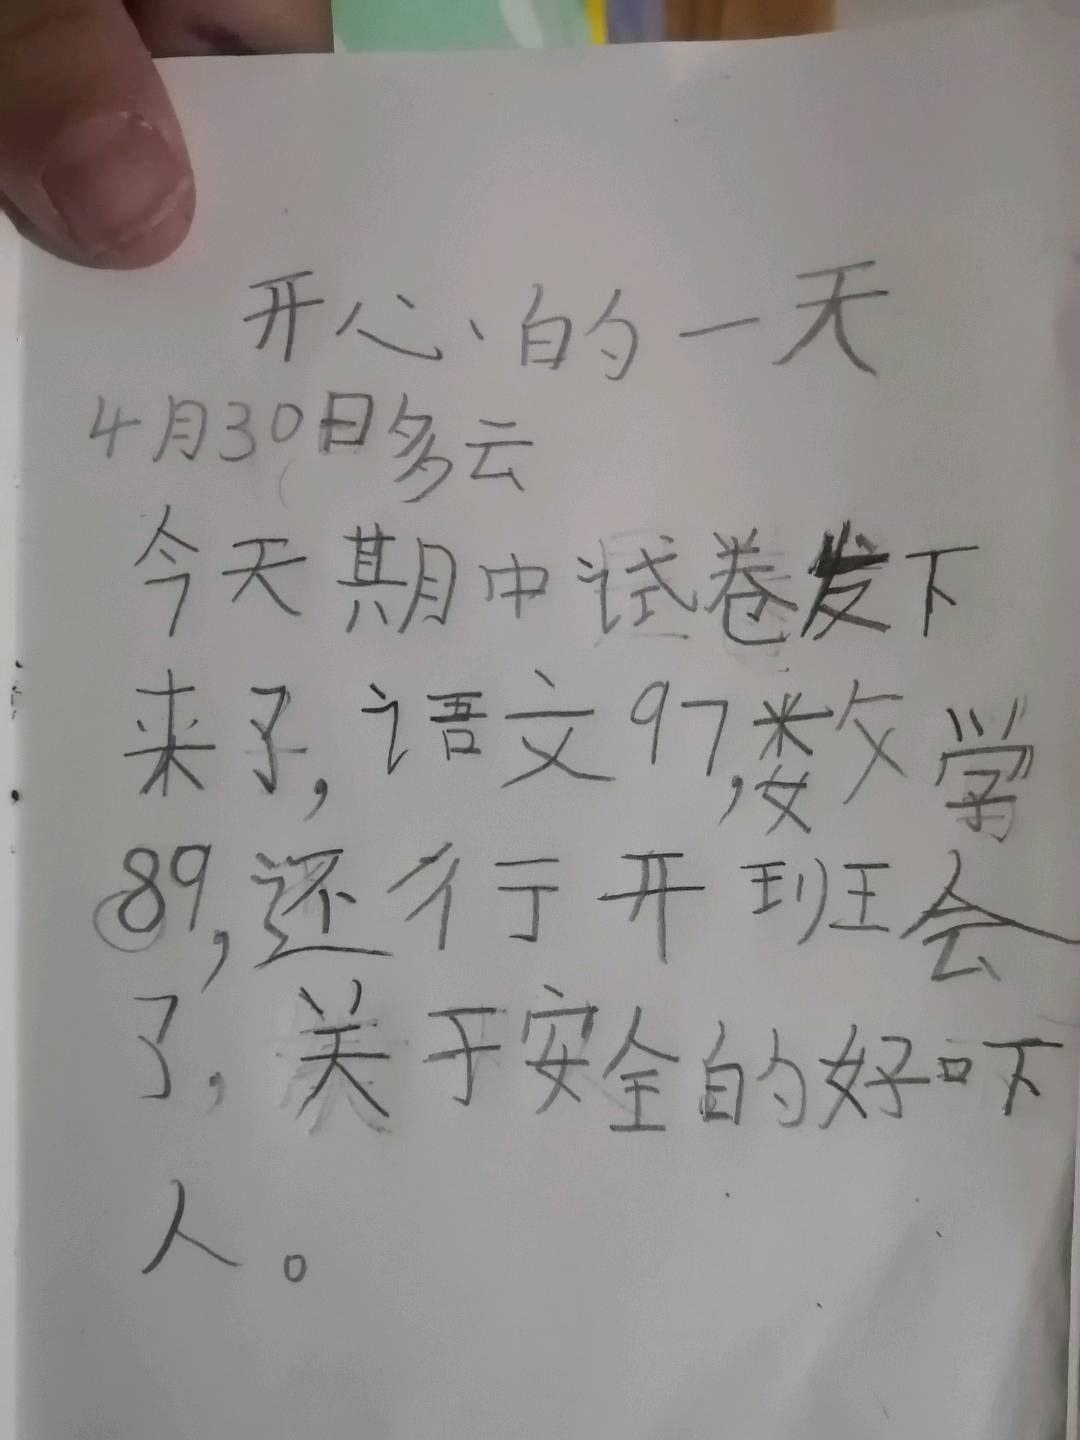 开心的一天
4月30日多云
今天期中试卷发下
来了,语文97,数学
89,还行开班会
了,关于安全的好吓
人。